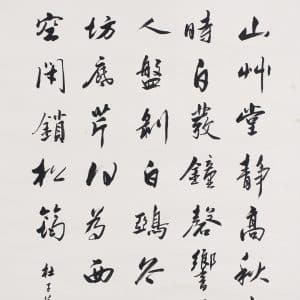 山艸堂靜高秋
時自發鐘磬響
人盤剝白鵶谷
坊底芹何為西
空閉鎖松筠
杜子